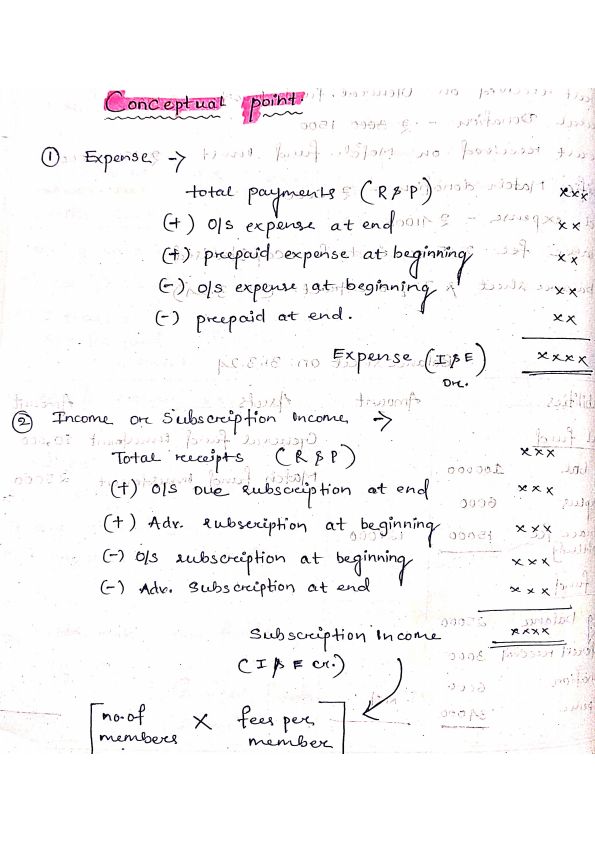 Conceptual point.
① Expense →
total payments (R&P) xxx
(+) O/S expense at end xx
(+) prepaid expense at beginning xx
(-) O/S expense at beginning xx
(-) prepaid at end. xx
Expense (I&E) xxxx
Dr.
② Income or Subscription income →
Total receipts (R&P) xxx
(+) O/S Due subscription at end xxx
(+) Adv. subscription at beginning xxx
(-) O/S subscription at beginning xxx
(-) Adv. Subscription at end xxx
Subscription income xxxx
(I & E cr.)
no. of members × fees per member